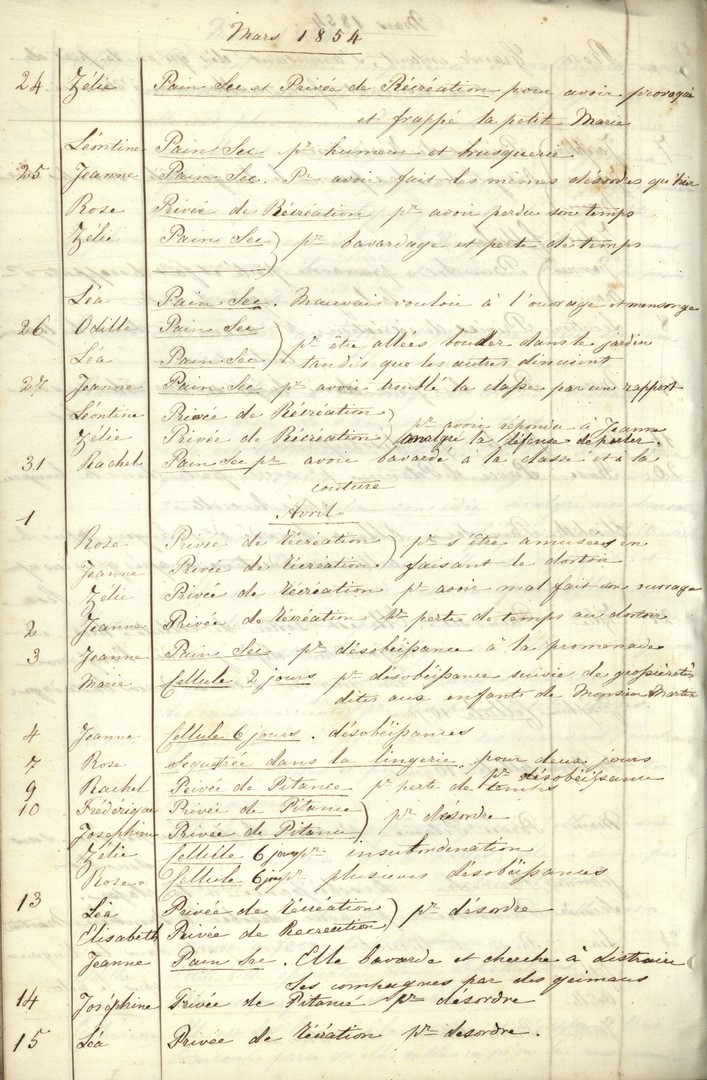 Mars 1854
24 Zélie Pain Sec et Privée de Récréation pour avoir provoqué
et frappé la petite Marie
Léontine Pain Sec pr humeur et brusquerie
25 Jeanne Pain Sec. Pr avoir fait les mêmes désordres qu'hier
Rose Privée de Récréation pr avoir perdu son temps
Zélie Pain Sec pr bavardage et perte de temps
Léa Pain Sec. Mauvais vouloir à l'ouvrage et mensonge
26 Odille Pain Sec pr être allées bouder dans le jardin
Léa Pain Sec tandis que les autres dinaient
27 Jeanne Pain Sec pr avoir troublé la classe par un rapport
Léontine Privée de Récréation pr avoir répondu à Jeanne
Zélie Privée de Récréation malgré la défense de parler.
31 Rachel Pain Sec pr avoir bavardé à la classe et à la
couture
Avril
1
Rose Privée de Récréation pr s'être amusées en
Jeanne Privée de Récréation faisant le dortoir
Zélie Privée de Récréation pr avoir mal fait son ouvrage
2 Jeanne Privée de Récréation pr perte de temps au dortoir
3 Jeanne Pain Sec pr désobéissance à la promenade
Marie Cellule 2 jours pr désobéissance suivie de grossièretés
dites aux enfants de Monsieur Martin
4 Jeanne Cellule 6 jours. désobéissances
7 Rose Sequestrée dans la lingerie pour deux jours
pr désobéissance
9 Rachel Privée de Pitance pr perte de temps
10 Frédérique Privée de Pitance pr désordre
Joséphine Privée de Pitance
Zélie Cellule 6 jours pr insubordination
Rose Cellule 6 jours pr plusieurs désobéissances
13
Léa Privée de Récréation pr désordre
Elisabeth Privée de Récréation
Jeanne Pain sec. Elle bavarde et cherche à distraire
ses compagnes par des
14 Joséphine Privée de Pitance pr désordre
15 Léa Privée de Récréation pr désordre.